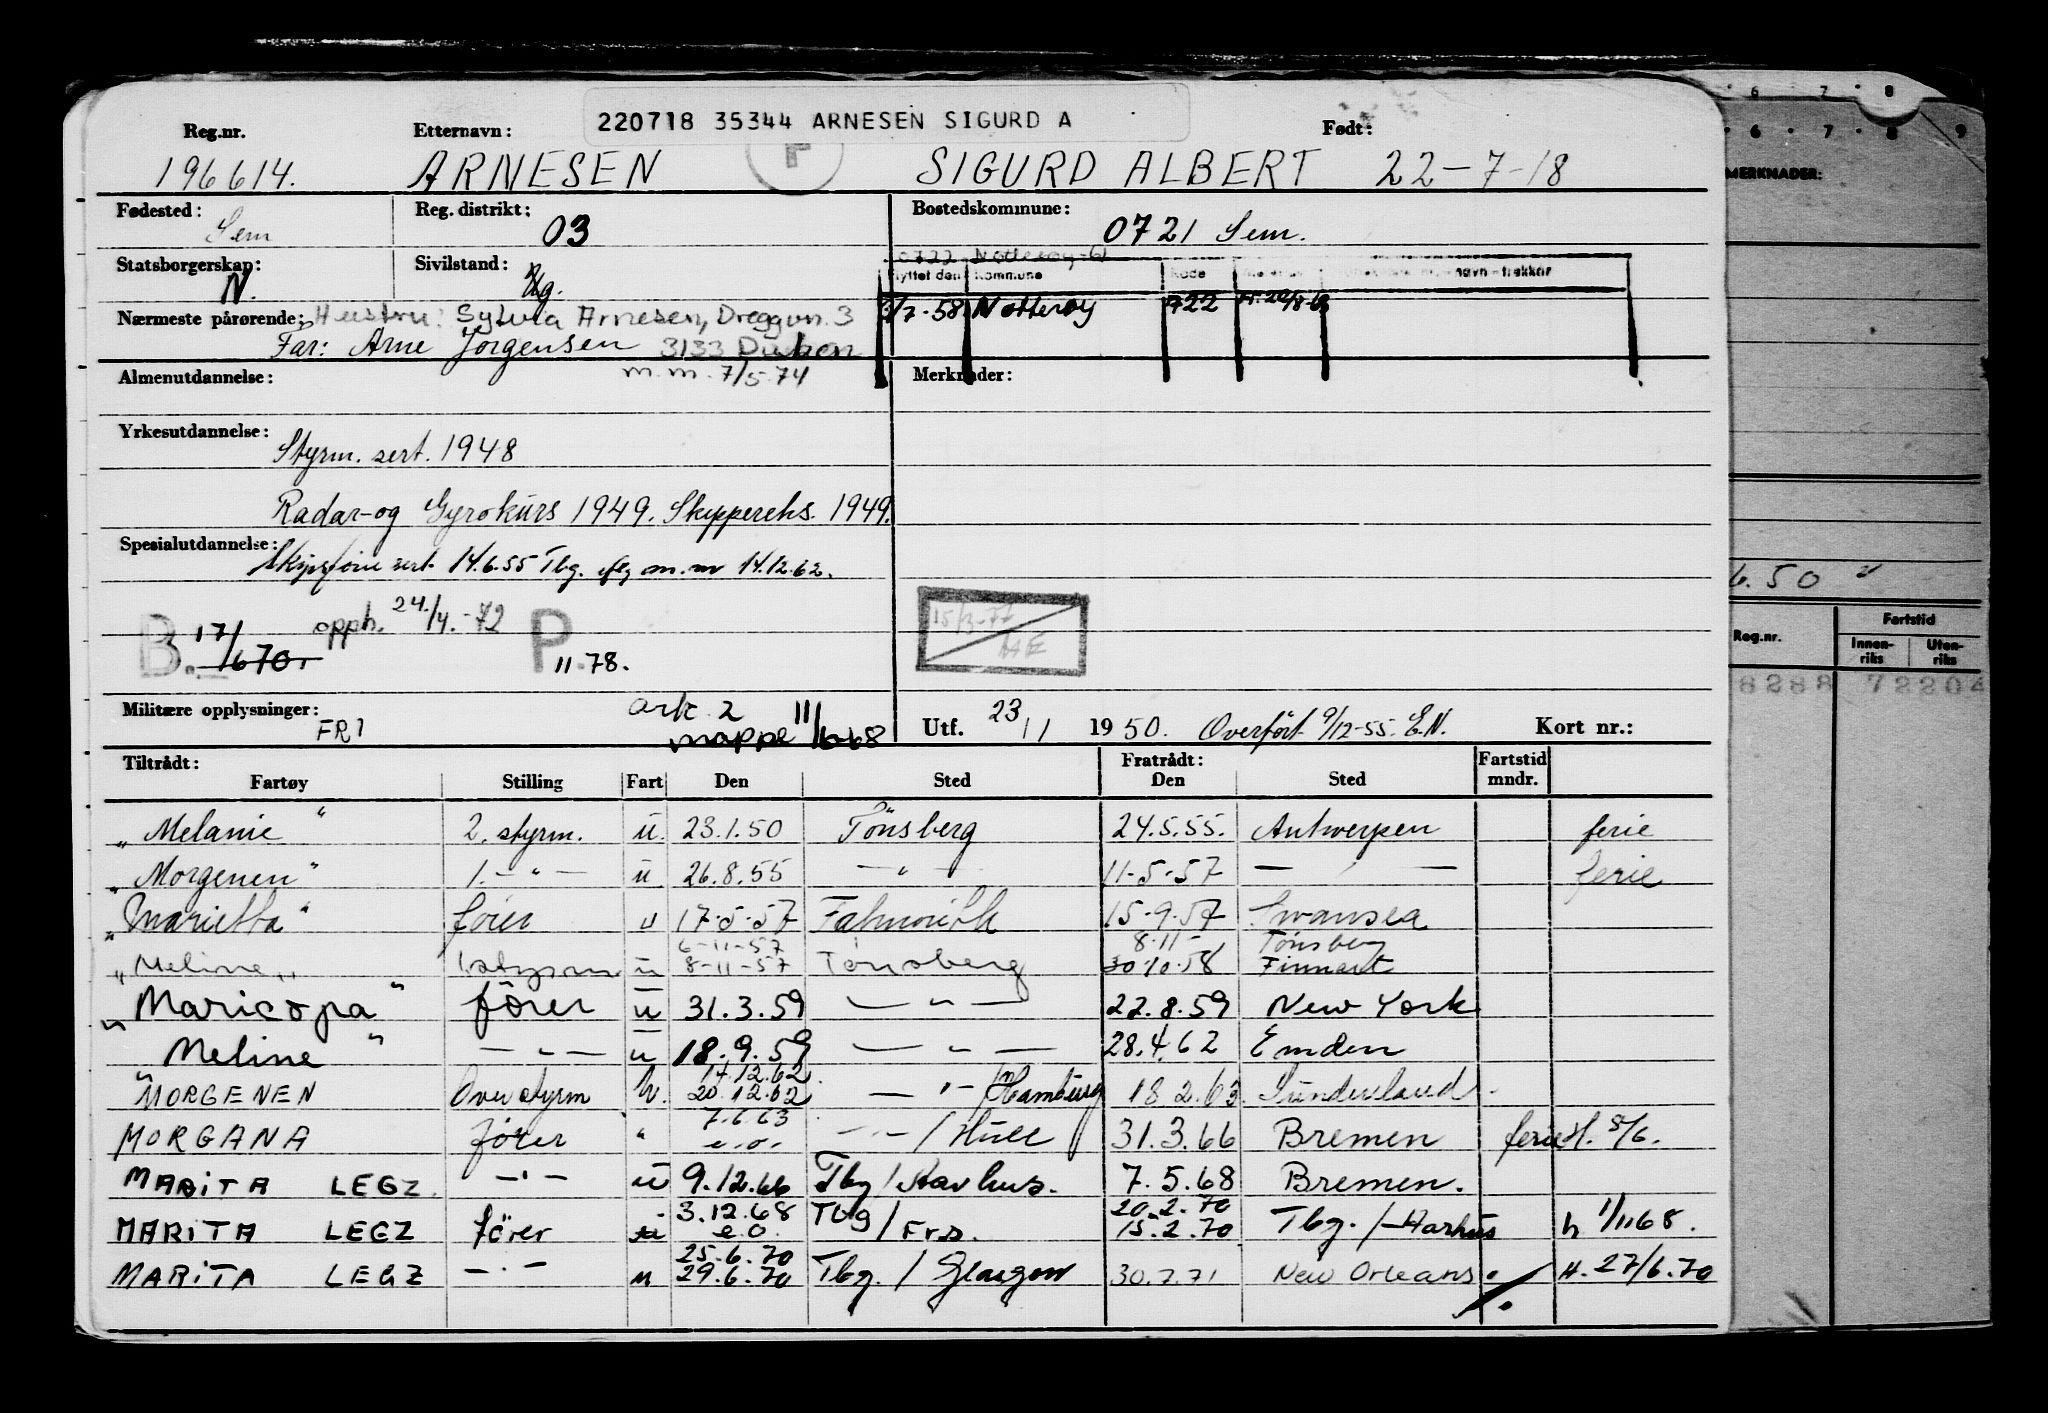 220718 35344 ARNESEN SIGURD A
Reg.nr. Etternavn: Født:
196614. ARNESEN SIGURD ALBERT 22-7-18
Fødested: Sem Reg. distrikt: 03 Bostedskommune: 0721 Sem.
0722 Nøtterøy
Statsborgerskap: N. Sivilstand: Ug.
Flyttet den Kommune Kode
Nærmeste pårørende: Hustru: Sylvia Arnesen, Dreggvn. 3
/7-58 Nøtterøy 722
Far: Arne Jørgensen 3133 Duken
m.m. 7/5.74
Almenutdannelse: Merknader:
Yrkesutdannelse:
Styrm. sert. 1948
Radar-og Gyrokurs 1949. Skippereks. 1949.
Spesialutdannelse:
sert. 14.6.55 Tbg. m.m 14.12.62.
B. 17/670. opph. 24./4.-72 P 11.78.
15/3-77
Militære opplysninger: FRI ark. 2 mappe 11/668
Utf. 23/1 1950. Overført 9/12-55. E.N. Kort nr.:
Tiltrådt: Fratrådt: Fartstid
Fartøy Stilling Fart Den Sted Den Sted mndr.
"Melanie" 2. styrm. u. 23.1.50 Tönsberg 24.5.55. Antwerpen ferie
"Morgenen" 1. -"- u 26.8.55 -"- 11-5-57 -"- ferie
"Marietta" fører u 17-5-57 Falmouth 15-9-57 Swansea
6-11-57 8-11- Tönsberg
"Meline" 1 styrm u 8-11-57 Tønsberg 30.10.58 Finnart
"Maricopa" fører u 31.3.59 -"- 22.8.59 New York
"Meline" -"- u 18.9.59 -"- 28.4.62 Emden
17.12.62
"MORGENEN Overstyrm u. 20.12.62 -"- /Hamburg 18 2.63. Sunderland
7.6.63
MORGANA fører " e.o. -"- / Hull 31.3.66 Bremen ferie H. 8/6.
MARITA LEGZ. -"- u 9.12.66 Tbg / Aarhus. 7.5.68 Bremen.
3.12.68 20.2.70
MARITA LEGZ fører u e.o. Tbg / Frd. 15.2.70 Tbg. / Aarhus h 1/1168.
25.6.70
MARITA LEGZ -"- u 29.6.70 Tbg. / Glasgow 30.7.71 New Orleans H. 27/6.70
6 7 8
6 7 8 9
MERKNADER:
6.50
Reg.nr. Fartstid
Innen-riks Uten-riks
8288 72204